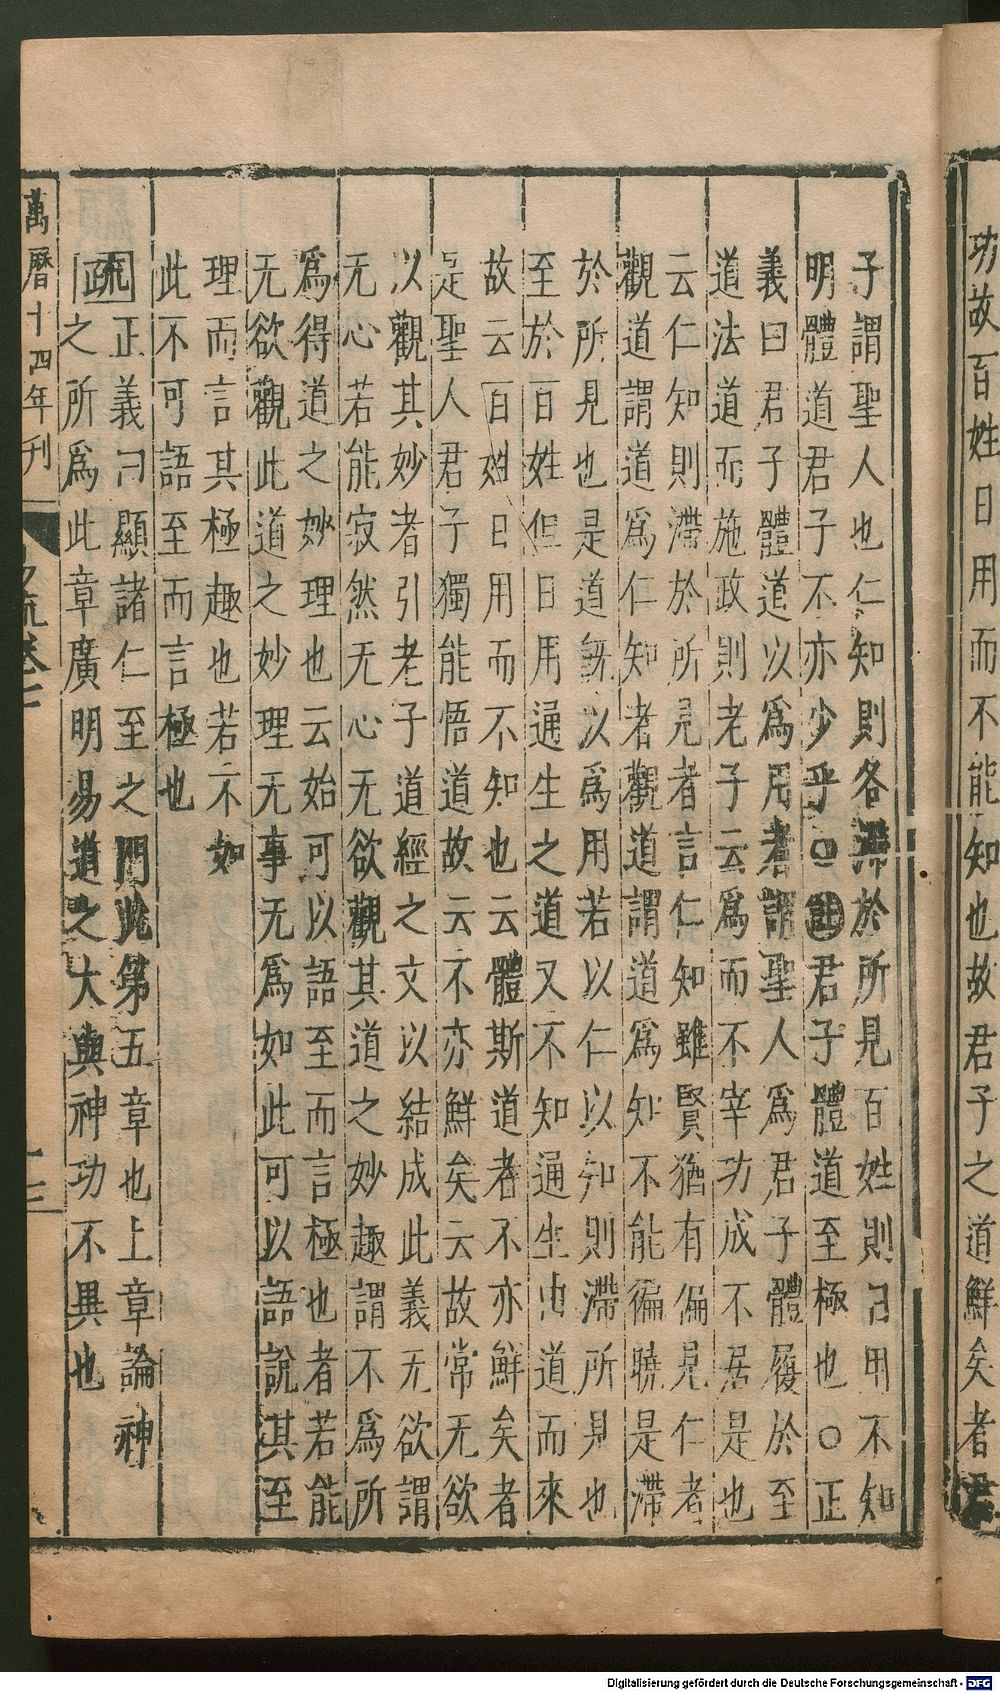 功故百姓日用而不能知也故君子之道鮮矣者君
子謂聖人也仁知則各滯於所見百姓則日用不知
明體道君子不亦少乎○註君子體道至極也○正
義曰君子體道以爲用者謂聖人爲君子體履於至
道法道而施政則老子云爲而不宰功成不居是也
云仁知則滯於所見者言仁知雖賢猶有偏見仁者
觀道謂道爲仁知者觀道謂道爲知不能徧曉是滯
於所見也是道既以爲用若以仁以知則滯所見也
至於百姓但日用通生之道又不知通生由道而來
故云百姓日用而不知也云體斯道者不亦鮮矣者
是聖人君子獨能悟道故云不亦鮮矣云故常无欲
以觀其妙者引老子道經之文以結成此義无欲謂
无心若能寂然无心无欲觀其道之妙趣謂不爲所
爲得道之妙理也云始可以語至而言極也者若能
无欲觀此道之妙理无事无爲如此可以語說其至
理而言其極趣也若不如
此不可語至而言極也
疏正義曰顯諸仁至之門此第五章也上章論神
之所爲此章廣明易道之大與神功不異也
萬曆十四年刊
易疏卷七
十三
Digitalisierung gefördert durch die Deutsche Forschungsgemeinschaft - DFG